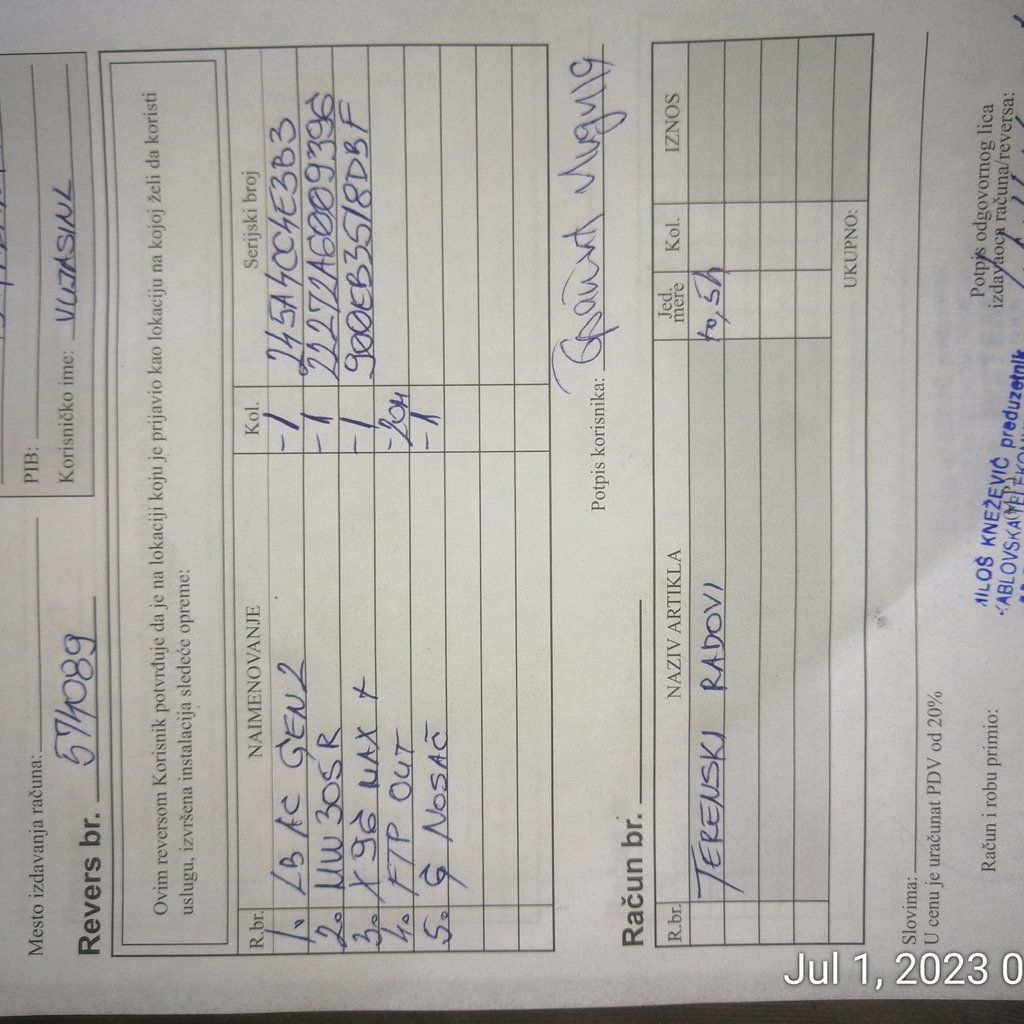 Mesto izdavanja računa:
PIB:
Korisničko ime: VUJASINL
Revers br. 574089
Ovim reversom Korisnik potvrđuje da je na lokaciji koju je prijavio kao lokaciju na kojoj želi da koristi
uslugu, izvršena instalacija sledeće opreme:
R.br. NAIMENOVANJE Kol. Serijski broj
1. LB AC GEN2 -1 245A4CC4E3B3
2. MW 305R -1 22272A6009396
3. X96 MAX + -1 900EB3518DBF
4. FTP OUT -20m
5. G NOSAČ -1
Potpis korisnika:
Račun br.
R.br. NAZIV ARTIKLA Jed. mere Kol. IZNOS
TERENSKI RADOVI
UKUPNO:
Slovima:
U cenu je uračunat PDV od 20%
Račun i robu primio:
Potpis odgovornog lica
izdavaoca računa/reversa:
MILOŠ KNEŽEVIĆ preduzetnik
Jul 1, 2023